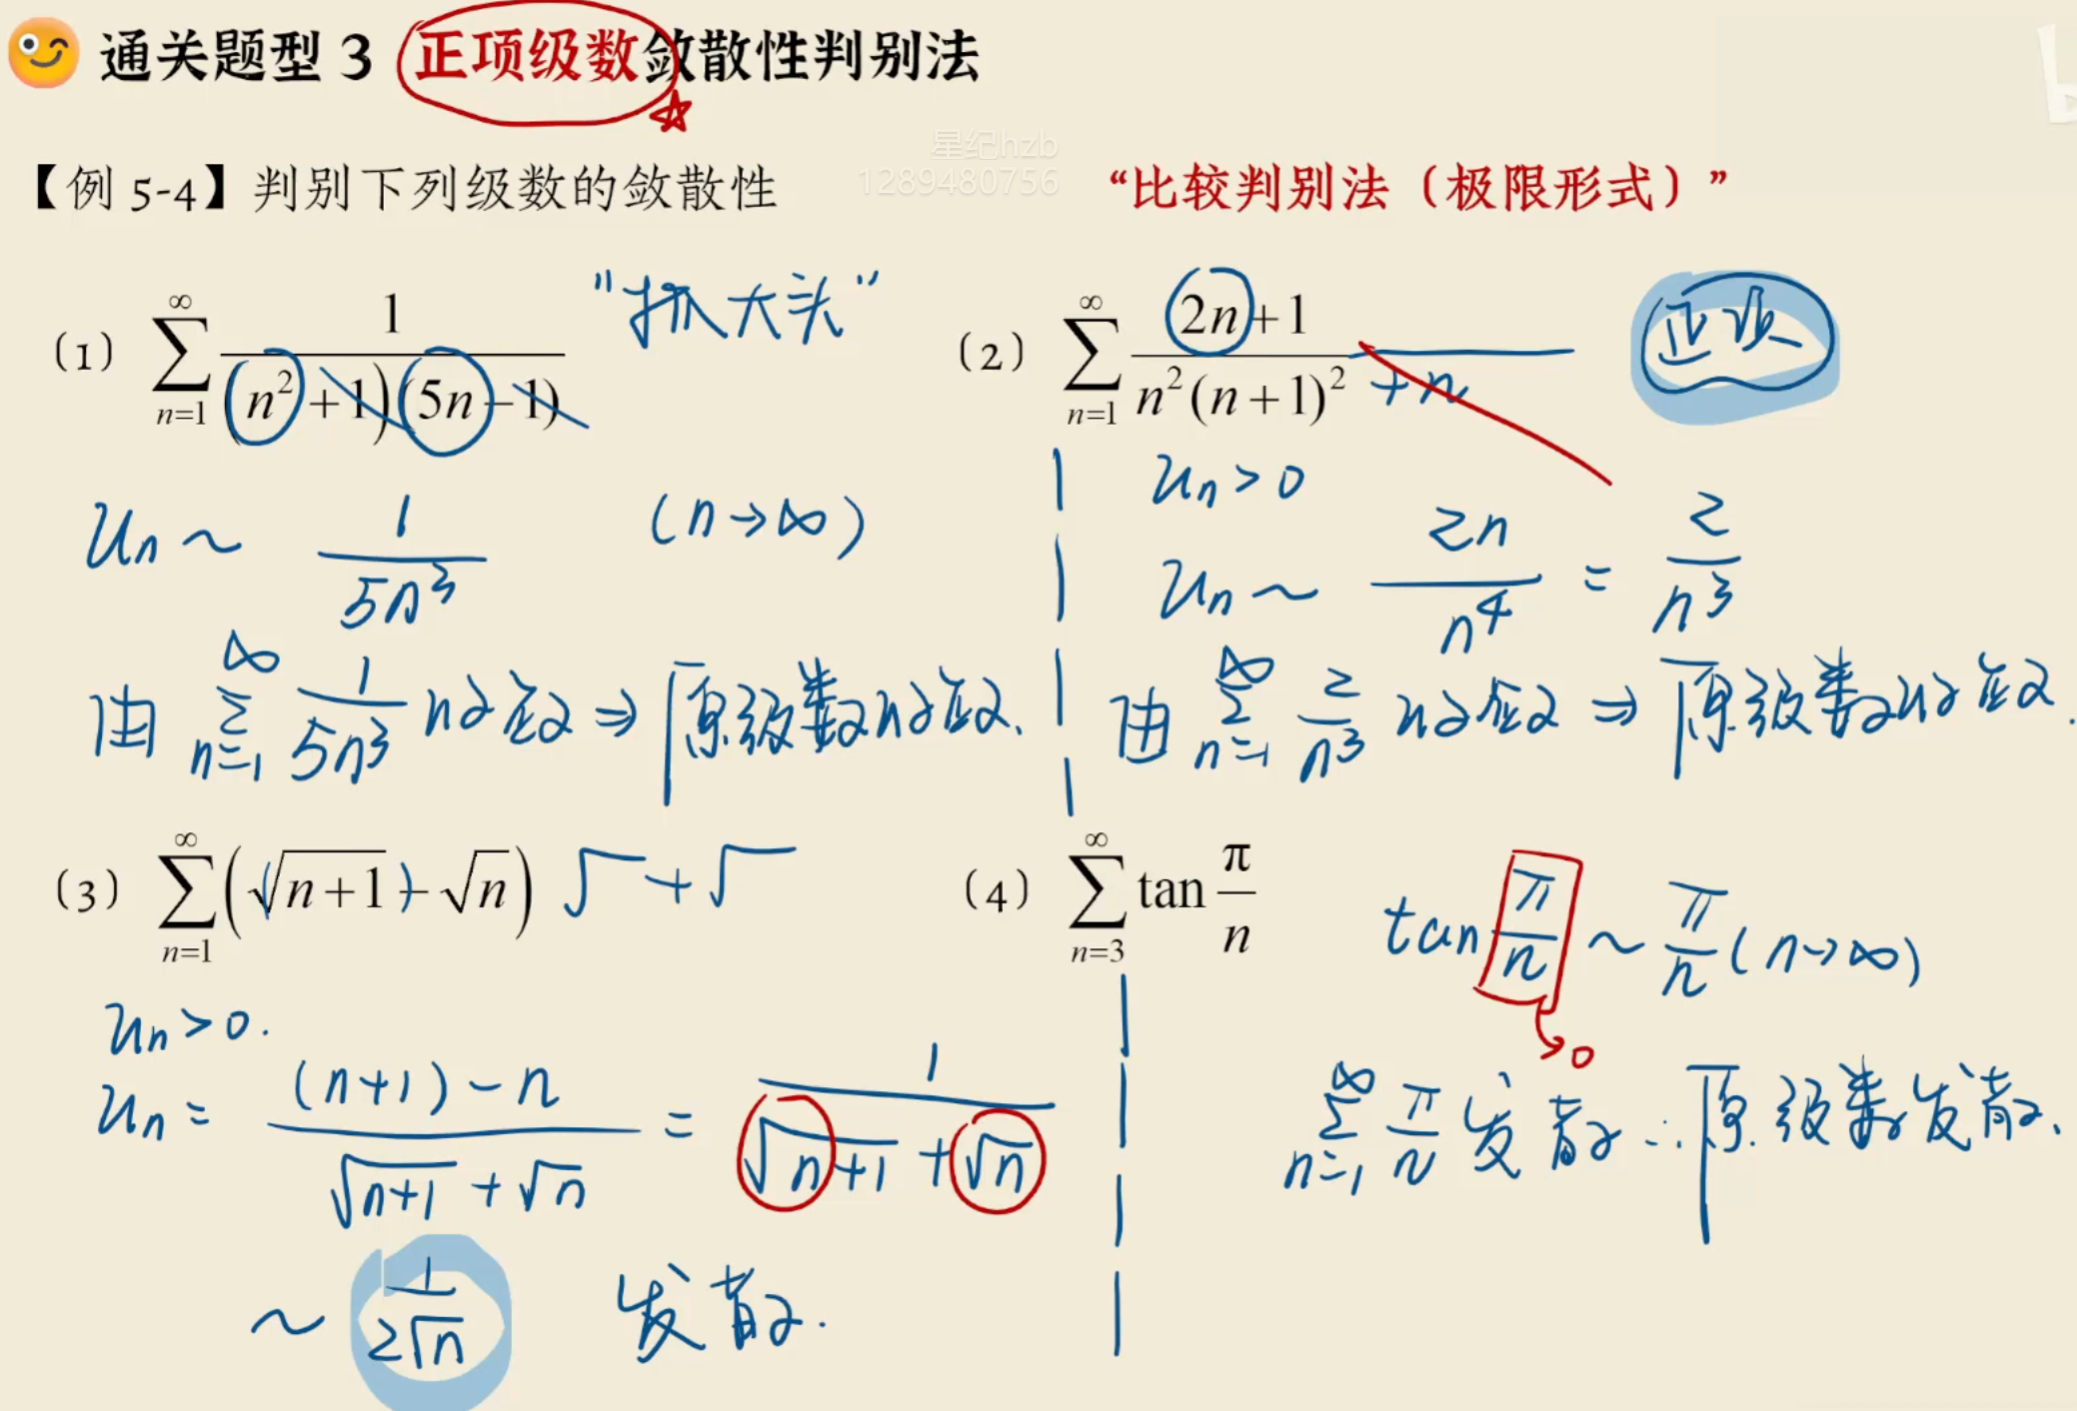 通关题型 3 正项级数敛散性判别法
星纪hzb
1289480756
【例 5-4】判别下列级数的敛散性 “比较判别法（极限形式）”
（1） ∑_{n=1}^{∞} 1/((n²+1)(5n-1)) “抓大头”
u_n ~ 1/(5n³) (n→∞)
由 ∑_{n=1}^{∞} 1/(5n³) 收敛 ⇒ 原级数收敛.
（2） ∑_{n=1}^{∞} (2n+1)/(n²(n+1)²) +n 正项
u_n > 0
u_n ~ 2n/n⁴ = 2/n³
由 ∑_{n=1}^{∞} 2/n³ 收敛 ⇒ 原级数收敛.
（3） ∑_{n=1}^{∞} (√(n+1) - √n) √ + √
u_n > 0.
u_n = ((n+1) - n)/(√(n+1) + √n) = 1/(√(n+1) + √n)
~ 1/(2√n) 发散.
（4） ∑_{n=3}^{∞} tan π/n
tan π/n ~ π/n (n→∞)
→0
∑_{n=1}^{∞} π/n 发散 ∴ 原级数发散.